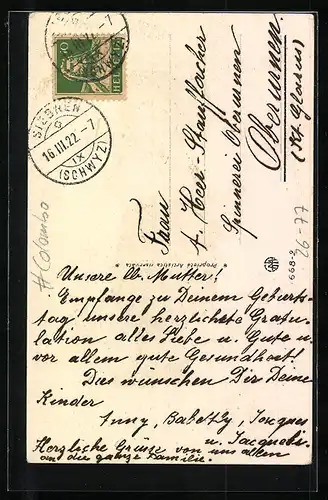 SIEBNEN
16.III.22.-7
IX
(SCHWYZ)
10
HELVETIA
Frau
A. Heer-Stauffacher
Spinnerei Oberurnen
Oberurnen
(Kt. Glarus)
* Proprietà Artistica riservata *
668-2
26-77
# Colombo
Unsere lb. Mutter!
Empfange zu Deinem Geburts-
tag unsere herzlichste Gratu-
lation alles Liebe u. Gute u.
vor allem gute Gesundheit!
Dies wünschen Dir Deine
Kinder
Anny, Babethly, Jacques
u. Jacquesli.
Herzliche Grüsse von uns allen
an die ganze Familie.